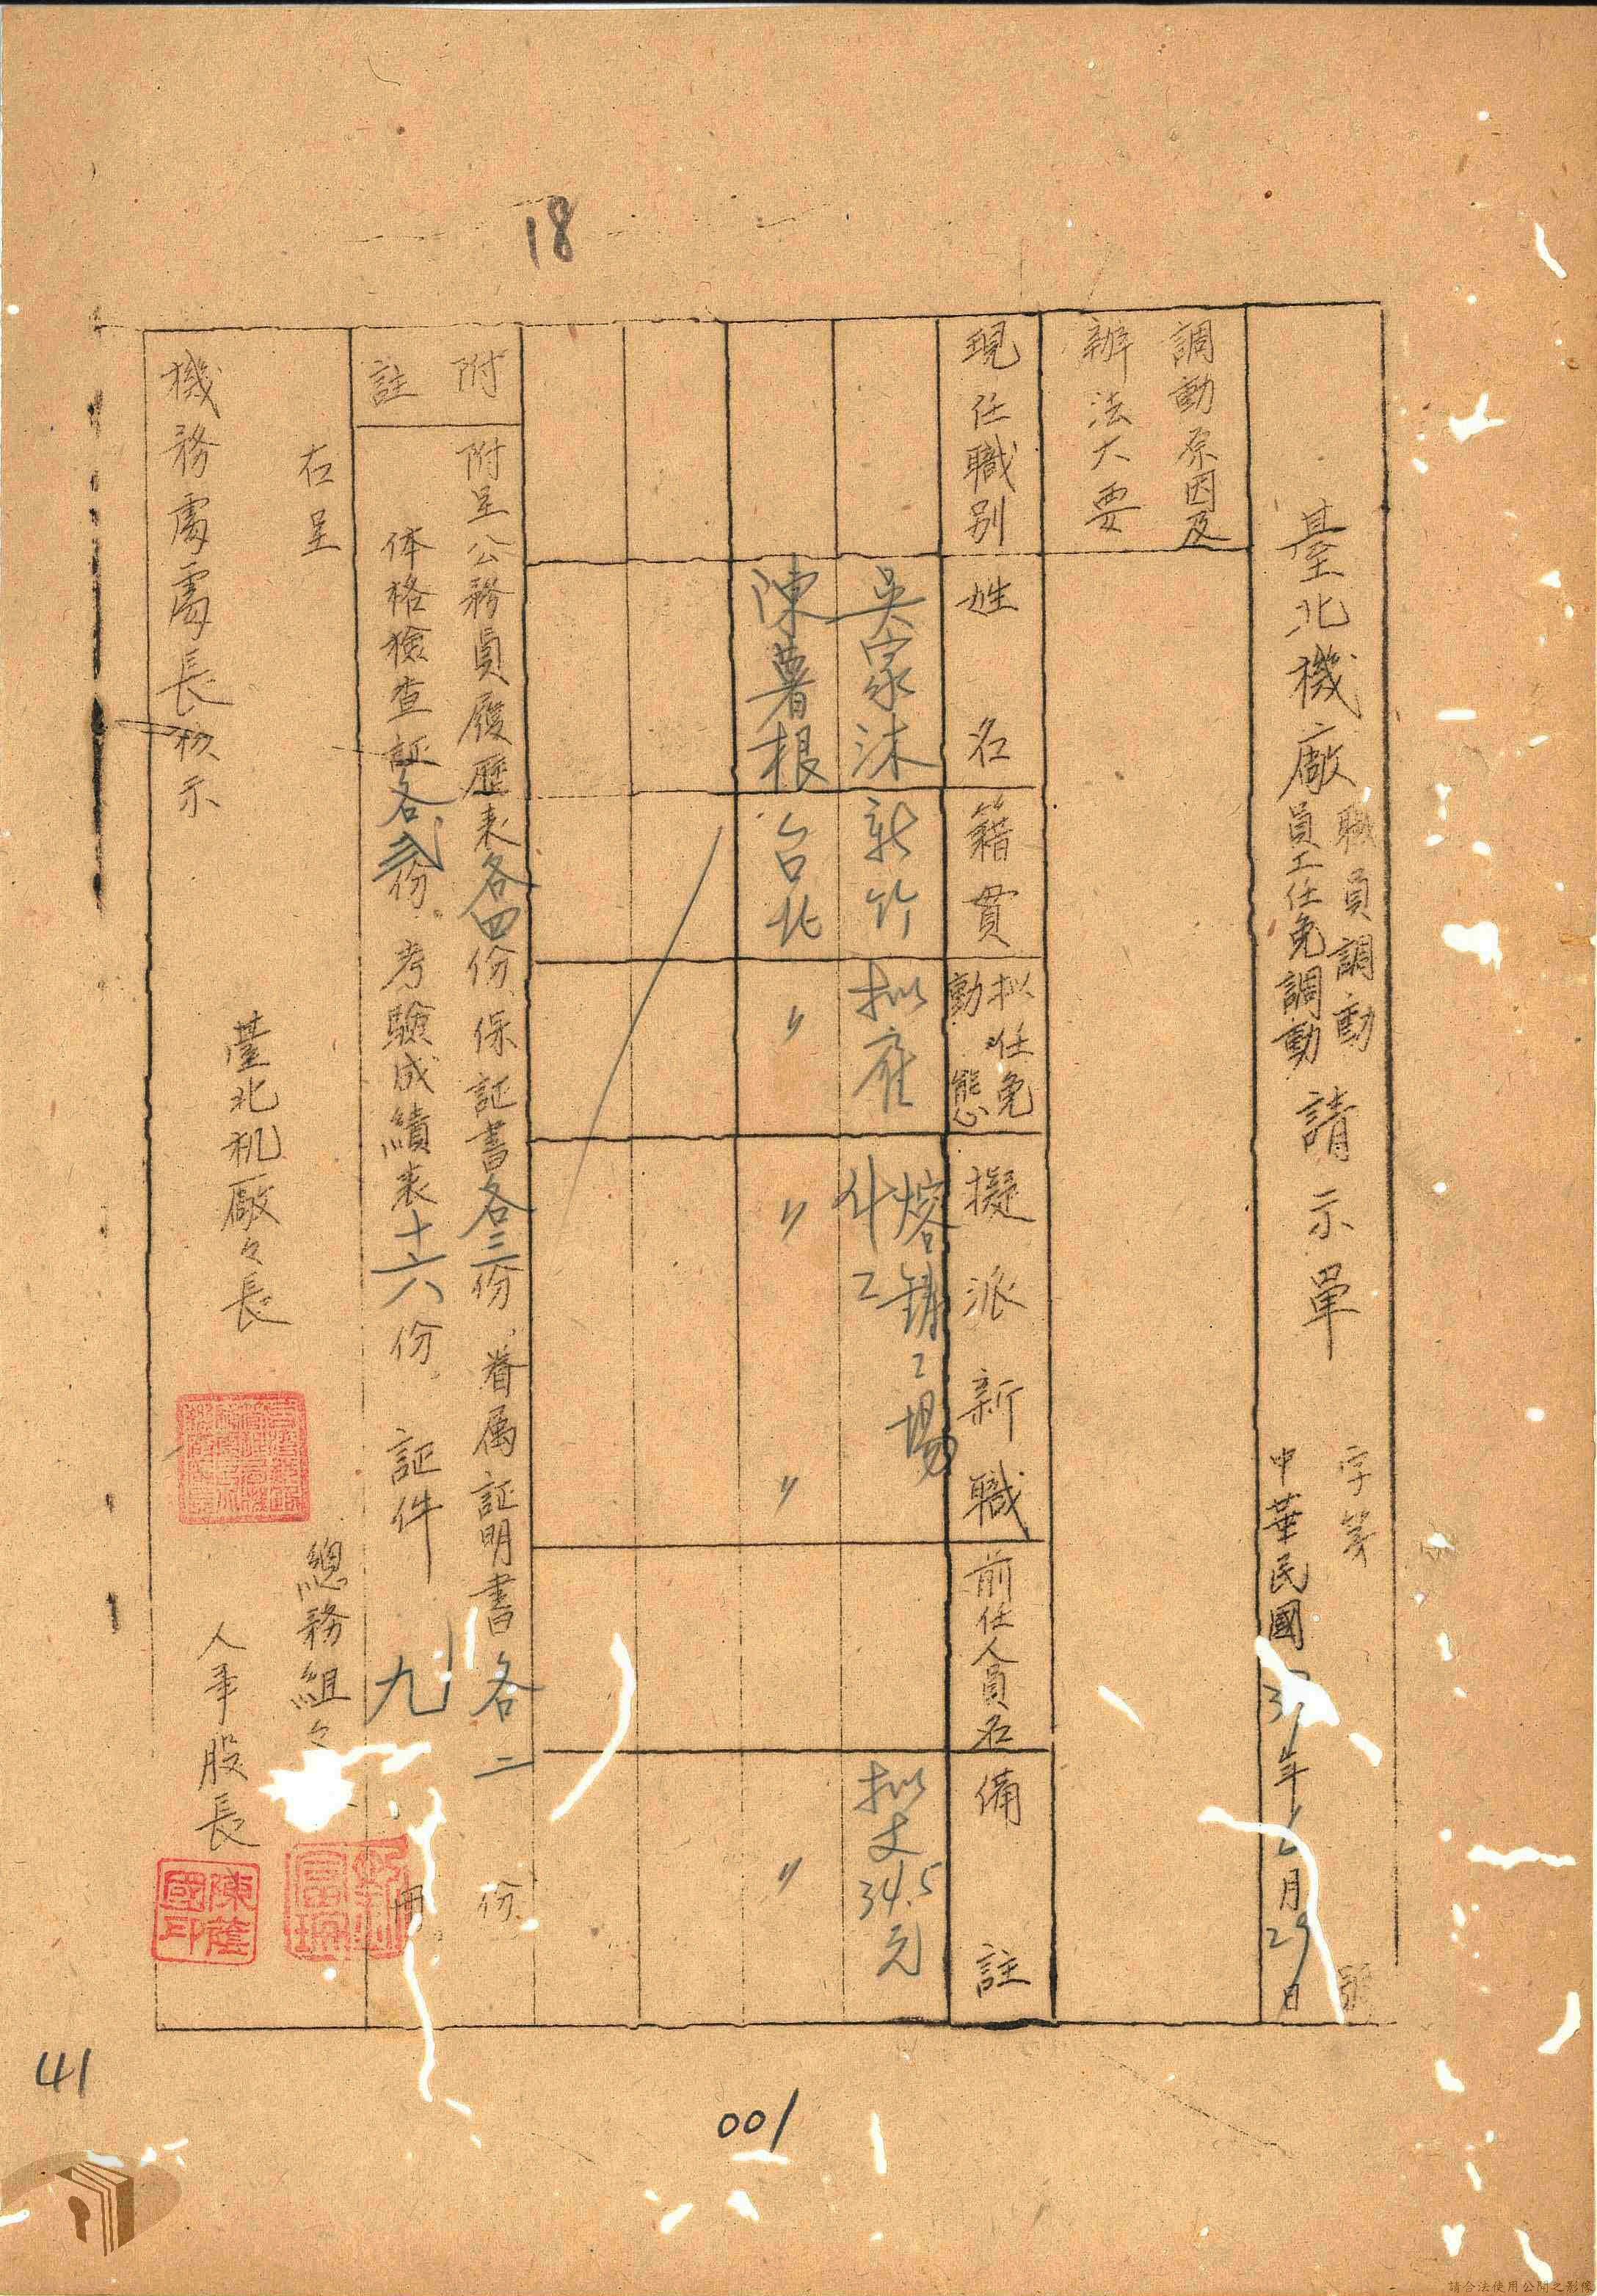 18
臺北機廠
職員調動
員工任免調動
請示單
字第
號
中華民國3 年6月29日
調動原因及
辦法大要
現任職別
姓名
籍貫
拟任免
動態
擬派新職
前任人員名
備註
吳家沐
新竹
拟雇
熔鑄工場
什工
拟支34.5元
陳薯根
台北
〃
〃
〃
〃
附註
附呈公務員履歷表各四份、保証書各三份、眷属証明書各二份
体格檢查証各貳份。考驗成績表十六份。証件九冊
右呈
機務處處長核示
臺北机廠々長
總務組々
人事股長
陳蔭國印
41
001
請合法使用公開之影像